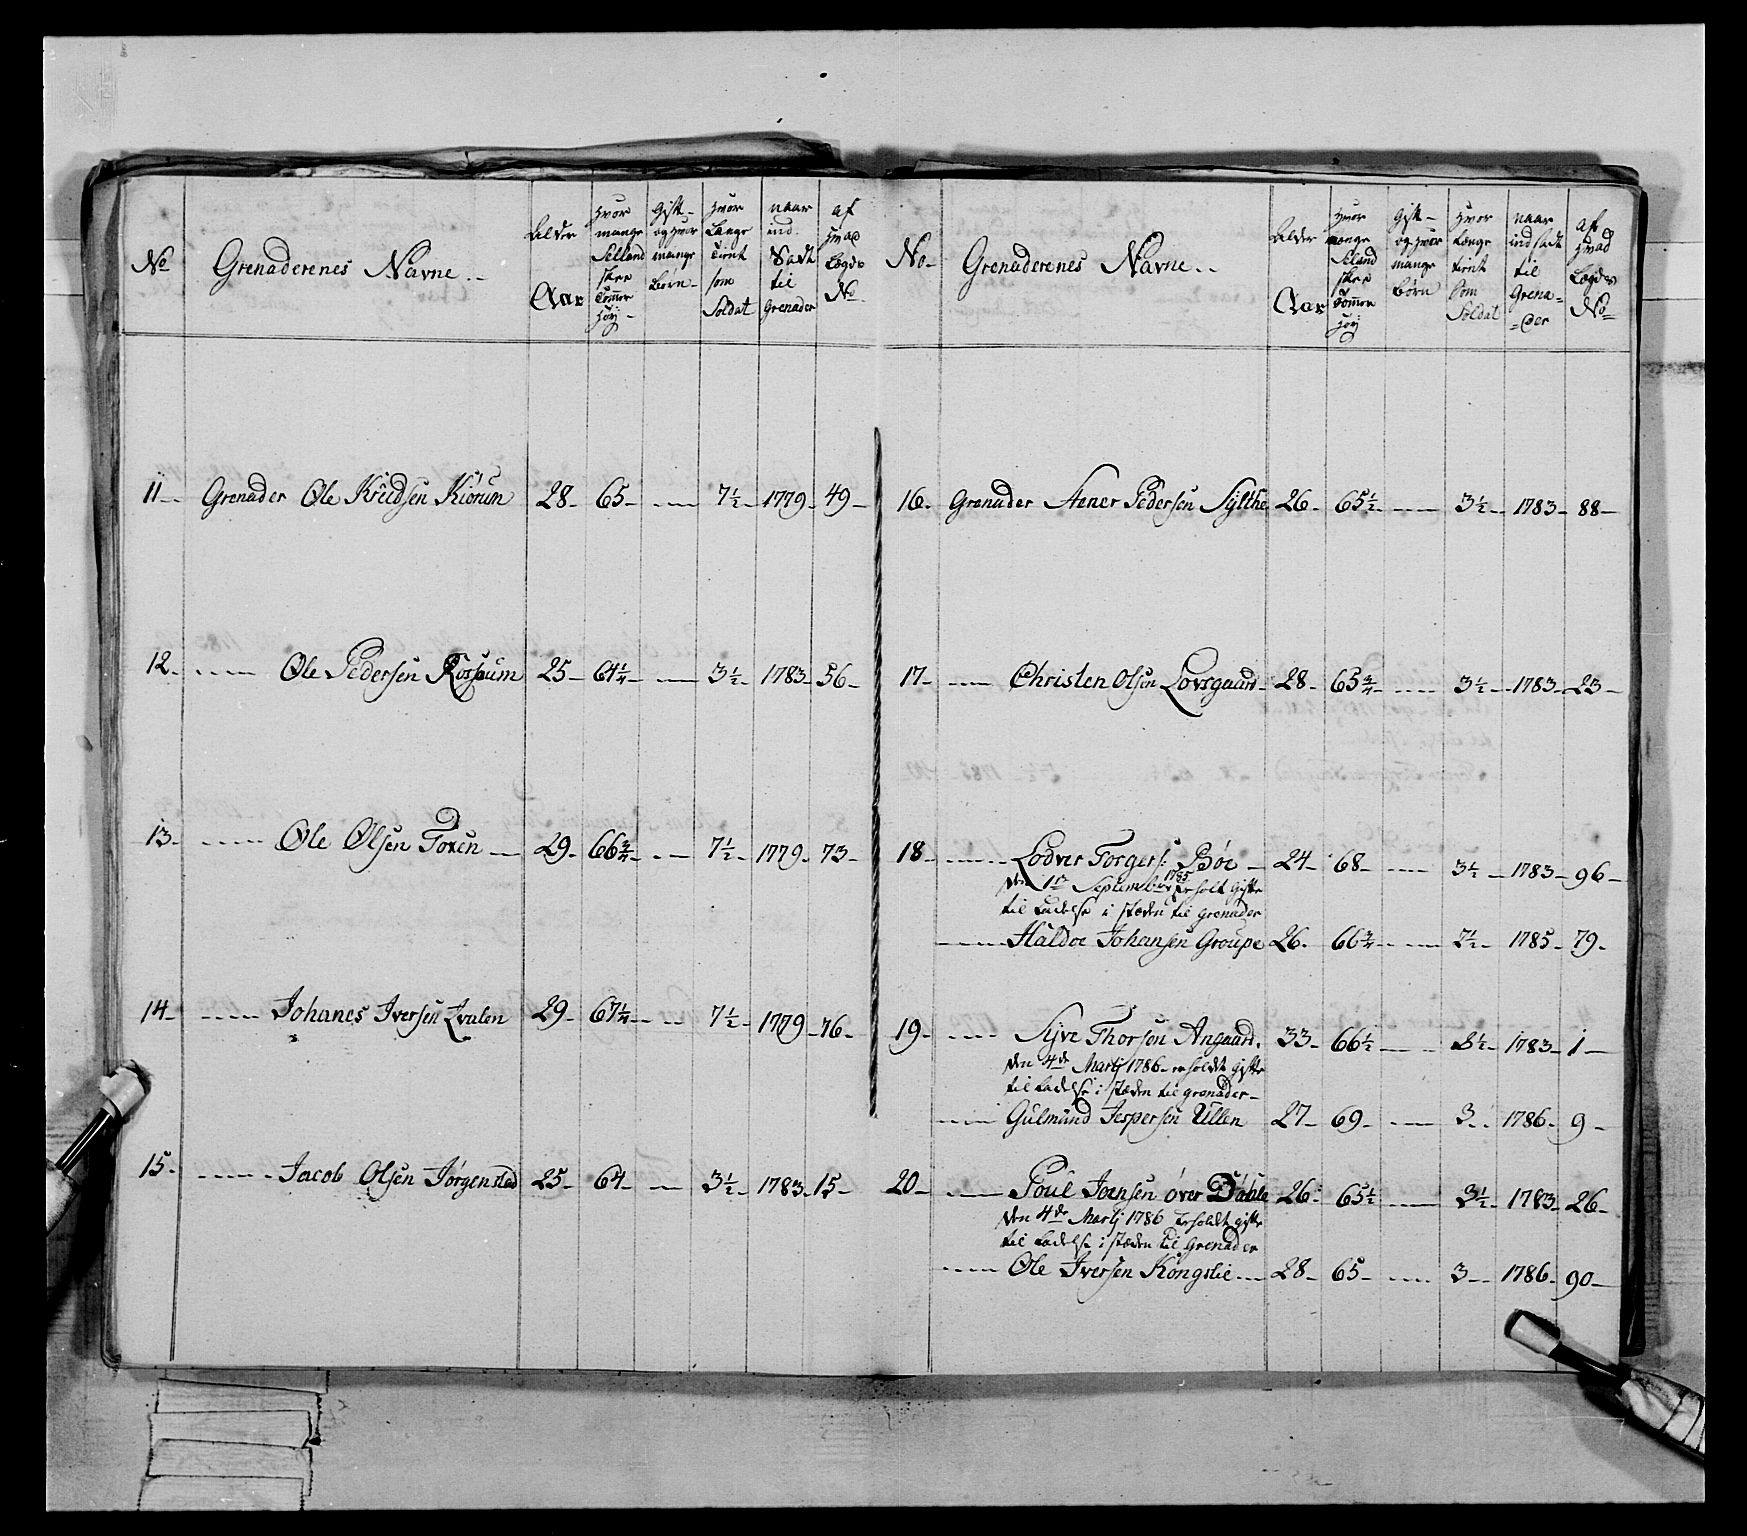 No
Grenaderenes Navne
Alder
Aar
hvor
mange
Selland
skee
Tommer
høy
Gift
og hvor
mange
Børn
hvor
Længe
tient
som
Soldat
naar
ind
Sadt
til
Grenader
af
hvad
Lægds
No
11 Grenader Ole Knudsen Kiørum 28 65 7½ 1779 49
12 Ole Pedersen Rossum 25 64¼ 3½ 1783 56
13 Ole Olsen Foxen 29 66¾ 7½ 1779 73
14 Johanes Iversen Qvalen 29 67¼ 7½ 1779 76
15 Jacob Olsen Jørgenstad 25 64 3½ 1783 15
No
Grenaderenes Navne
Alder
Aar
hvor
mange
Seland
skee
Tommer
høy
Gift
og hvor
mange
Børn
hvor
Længe
tient
som
Soldat
naar
indsadt
til
Grena-
-der
af
hvad
Lægds
No
16 Grenader Aener Pedersen Sylthe 26 65½ 3½ 1783 88
17 Christen Olsen Lovsgaard 28 65¾ 3½ 1783 23
18 Lodver Torgers: Bøe 24 68 3½ 1783 96
den 1te September 1785 Erholt gifte
til ladelse i stæden til Grenader
Haldoe Johansen Groupe 26 66¾ 2½ 1785 79
19 Syve Thorsen Angaard 33 66½ 3½ 1783 1
den 4de Martj 1786 erholdt gifte
til ladelse i stæden til grenader
Gulmund Jespersen Ullen 27 69 3 1786 9
20 Poul Joensen over Dahle 26 65½ 3½ 1783 26
den 4de Martj 1786 Erholdt gifte
til ladelse i stæden til Grenader
Ole Iversen Kongslie 28 65 3 1786 90